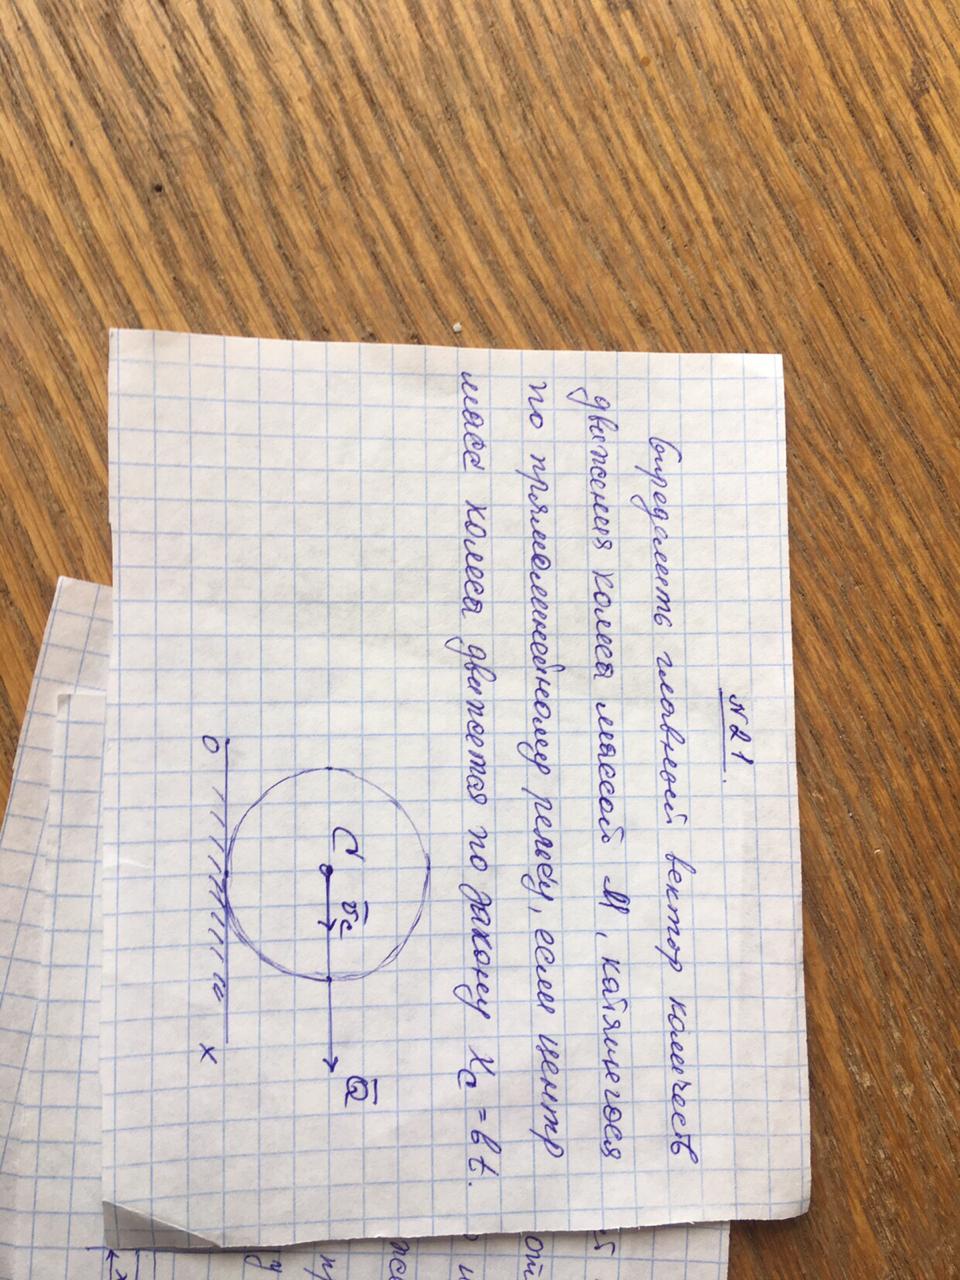 №21.
Определить главный вектор количеств
движения колеса массой М, катящегося
по прямолинейному рельсу, если центр
масс колеса движется по закону xc = bt.
C
v̅c
Q̅
0
x
от